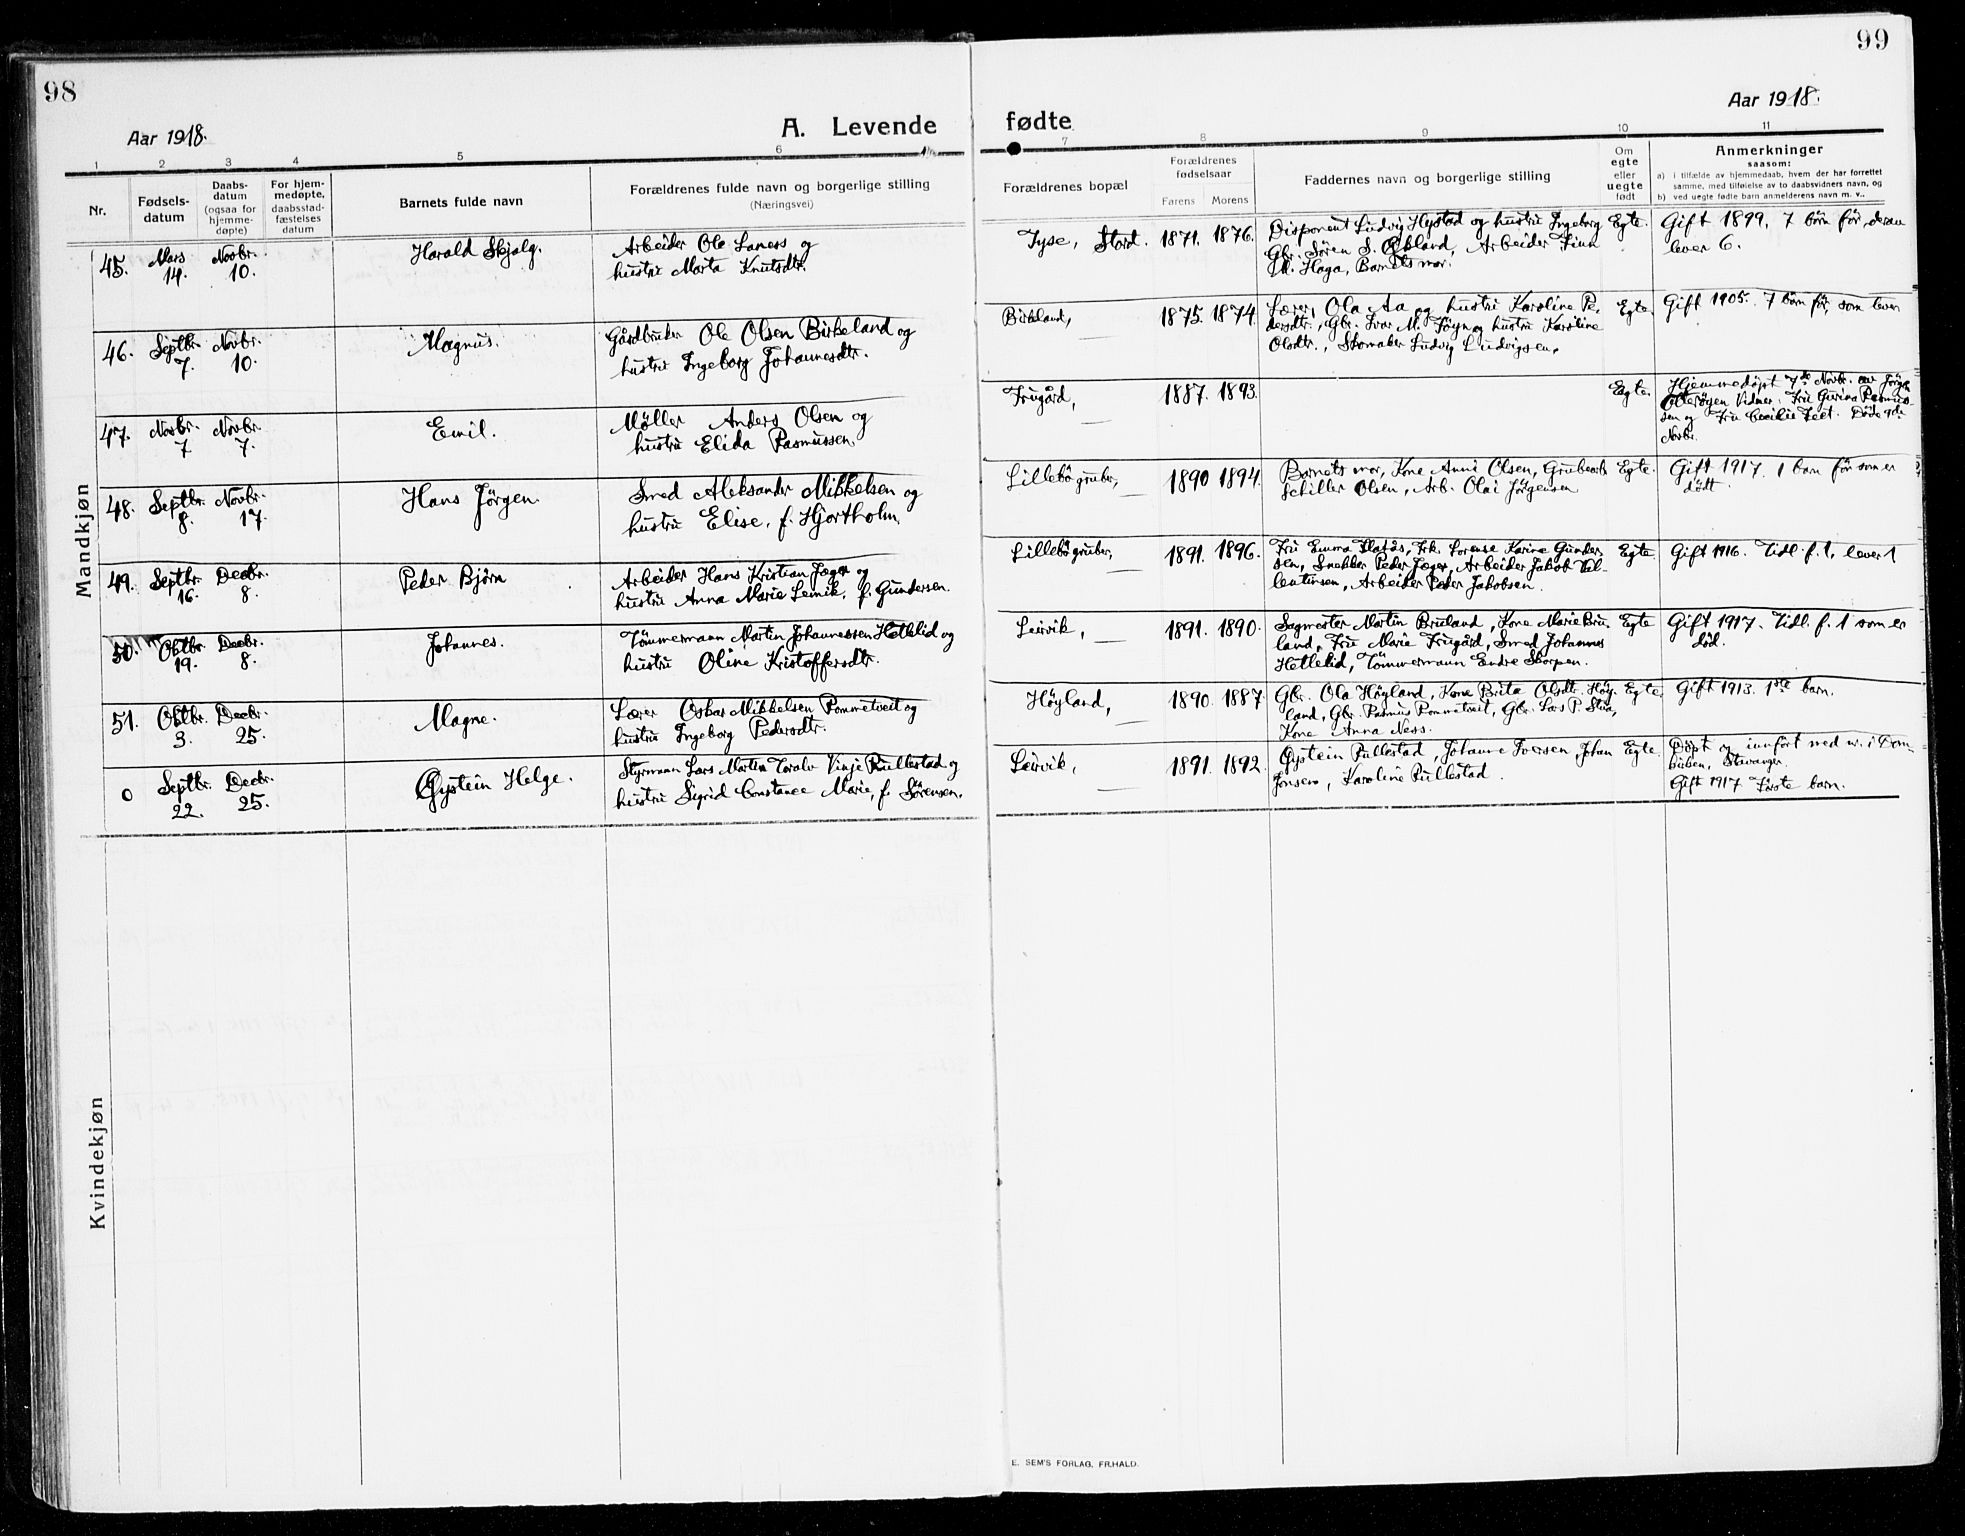 98
Aar 1918.
A. Levende
1 2 3 4 5 6
Nr.
Fødsels-
datum
Daabs-
datum
(ogsaa for
hjemme-
døpte)
For hjem-
medøpte,
daabsstad-
fæstelses
datum
Barnets fulde navn
Forældrenes fulde navn og borgerlige stilling
(Næringsvei)
Mandkjøn
45. Mars 14. Novbr. 10. Harald Skjalg. Arbeider Ole Laners og
hustru Marta Knutsdtr.
46. Septbr. 7. Novbr. 10. Magnus. Gårdbruker Ole Olsen Birkeland og
hustru Ingeborg Johannesdtr.
47. Novbr. 7 Novbr. 7. Emil. Møller Anders Olsen og
hustru Elida Rasmussen.
48. Septbr. 8. Novbr. 17. Hans Jörgen. Smed Aleksander Mikkelsen og
hustru Elise, f. Hjortholm.
49. Septbr. 16. Decbr. 8. Peder Bjørn Arbeider Hans Kristian Jæger og
hustru Anna Marie Lemik, f. Gundersen.
50. Oktbr. 19. Decbr. 8. Johannes. Tömmermann Martin Johannessen Hetlelid og
hustru Oline Kristoffersdtr.
51. Oktbr. 3. Decbr. 25. Magne. Lærer Oskar Mikkelsen Rommetveit og
hustru Ingeborg Pedersdtr.
0 Septbr. 22. Decbr. 25. Øystein Helge. Styrmann Lars Martin Toralv Vinje Rullestad og
hustru Sigrid Constance Marie, f. Sörensen.
Kvindekjøn
99
Aar 1918.
fødte
7 8 9 10 11
Forældrenes bopæl
Forældrenes
fødselsaar
Farens Morens
Faddernes navn og borgerlige stilling
Om
egte
eller
uegte
født
Anmerkninger
saasom:
a) i tilfælde av hjemmedaab, hvem der har forrettet
samme, med tilføielse av to daabsvidners navn, og
b) ved uegte fødte barn anmelderens navn m. v..
Tyse, Stord. 1871. 1876. Disponent Ludvig Hystad og hustru Ingeborg Egte. Gift 1899. 7 børn før, derav
Gbr. Sören S. Økland, Arbeider Finn lever 6.
M. Haga, Barnets mor.
Birkeland, 1875. 1874. Lærer, Ola Aa og hustru Karoline Pe- Egte. Gift 1905. 7 børn før, som lever
dersdtr., Gbr. Ivar M. Töyn og hustru Karoline
Olsdtr., Skomaker Ludvig Ludvigsen.
Frugård, 1887. 1893. Egte. Hjemmedøpt 7de Novbr. av Jörgen
Otteröyen Vidner: Fru Gurina Rasmus-
sen og Fru Cecilie Feet. Døde 9de
Novbr.
Lillebö gruber, 1890 1894 Barnets mor, Kone Anni Olsen, Grubearb. Egte. Gift 1917. 1 barn før som er
Schiller Olsen, Arb. Olai Jörgensen dödt.
Lillebö gruber, 1891. 1896. Fru Emma Flatås, Frk. Lorense Karine Gunder- Egte. Gift 1916. Tidl. f. 1, lever 1
sen, Snekker Peder Jæger, Arbeider Jakob Val-
lentinsen, Arbeider Peder Jakobsen.
Leirvik, 1891. 1890. Sagmester Martin Bruland, Kone Marie Bru- Egte Gift 1917. Tidl. f. 1 som er
land, Fru Marie Frugård, Smed Johannes död.
Hetlelid, Tömmermann Endre Skorpen.
Höyland, 1890. 1887. Gbr. Ola Höyland, Kone Brita Olsdtr. Höy- Egte Gift 1913. 1ste barn.
land, Gbr. Rasmus Rommetveit, Gbr. Lars P. Stua,
Kone Anna Ness.
Leirvik, 1891. 1892. Øystein Rullestad, Johanne Iversen, Johan Egte. Döpt og innfört med nr. i Dom-
Jonsen, Karoline Rullestad. kirken, Stavanger.
Gift 1917 Første barn.
E. SEM'S FORLAG, FR.HALD.